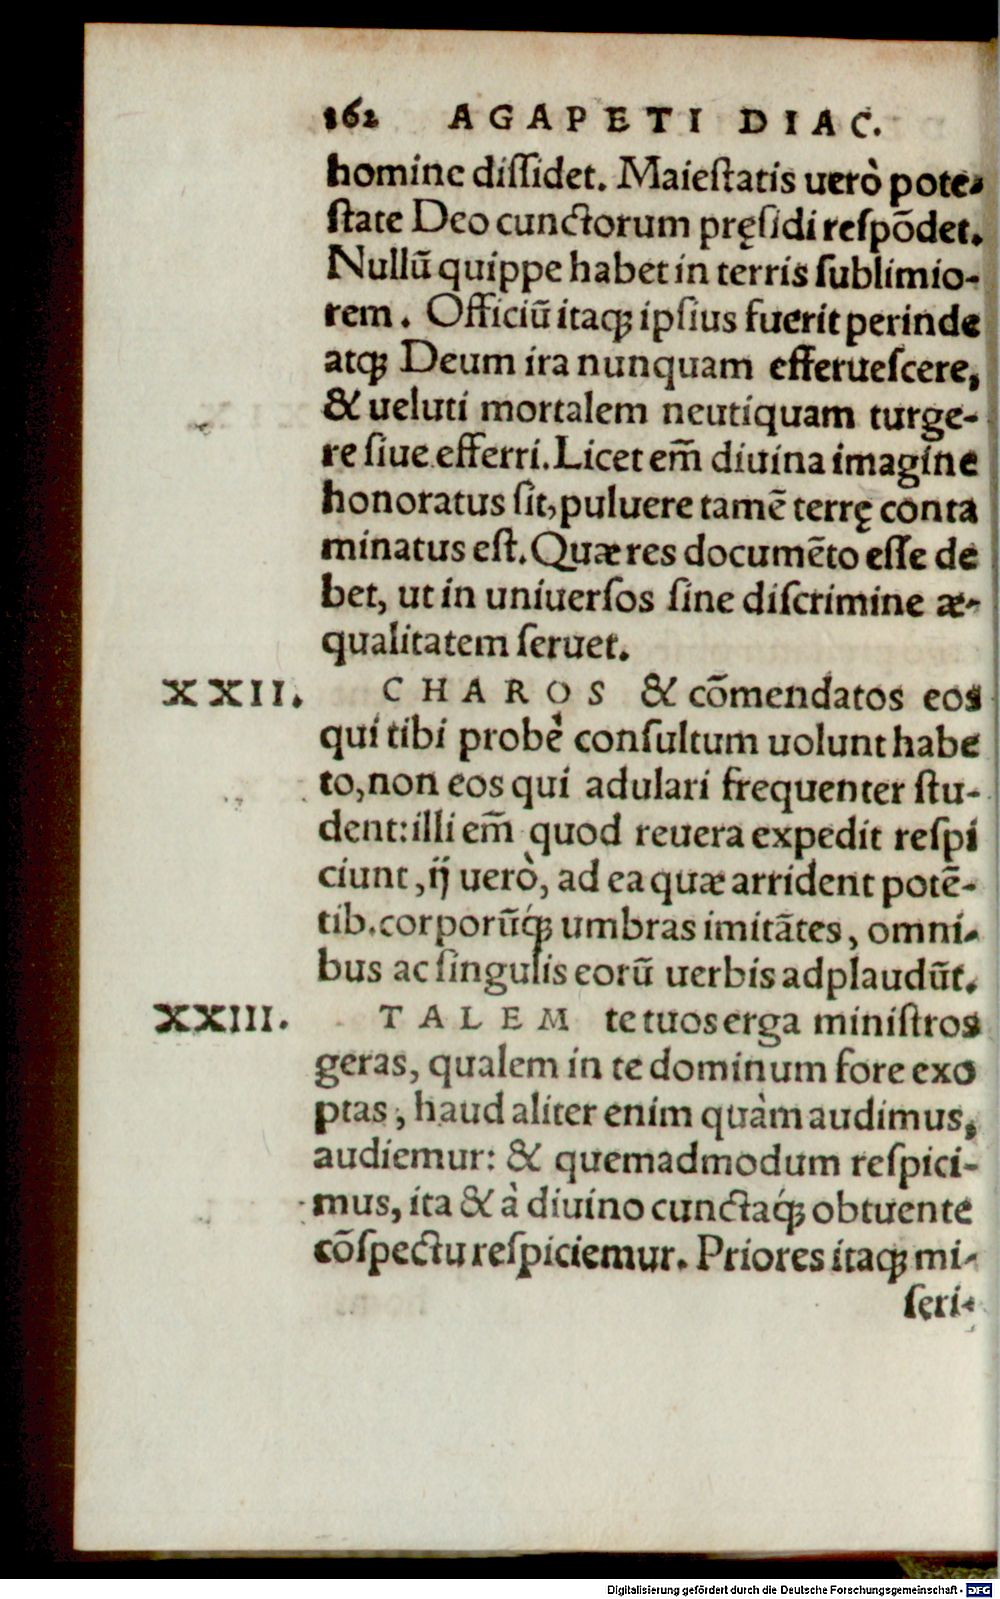 162 AGAPETI DIAC.
homine diſſidet. Maieſtatis uerò pote-
ſtate Deo cunctorum pręſidi reſpõdet.
Nullũ quippe habet in terris ſublimio-
rem. Officiũ itaq; ipſius fuerit perinde
atq; Deum ira nunquam efferueſcere,
& ueluti mortalem neutiquam turge-
re ſiue efferri. Licet em̃ diuina imagine
honoratus ſit, puluere tamẽ terrę conta
minatus eſt. Quæ res documẽto eſſe de
bet, ut in uniuerſos ſine diſcrimine æ-
qualitatem ſeruet.
XXII. CHAROS & cõmendatos eos
qui tibi probè conſultum uolunt habe
to, non eos qui adulari frequenter ſtu-
dent: illi em̃ quod reuera expedit reſpi
ciunt, ij uerò, ad ea quæ arrident potẽ-
tib. corporũq́; umbras imitãtes, omni-
bus ac ſingulis eorũ uerbis adplaudũt.
XXIII. TALEM te tuos erga miniſtros
geras, qualem in te dominum fore exo
ptas, haud aliter enim quàm audimus,
audiemur: & quemadmodum reſpici-
mus, ita & à diuino cunctaq́; obtuente
cõſpectu reſpiciemur. Priores itaq; mi-
ſeri-
Digitalisierung gefördert durch die Deutsche Forschungsgemeinschaft - DFG